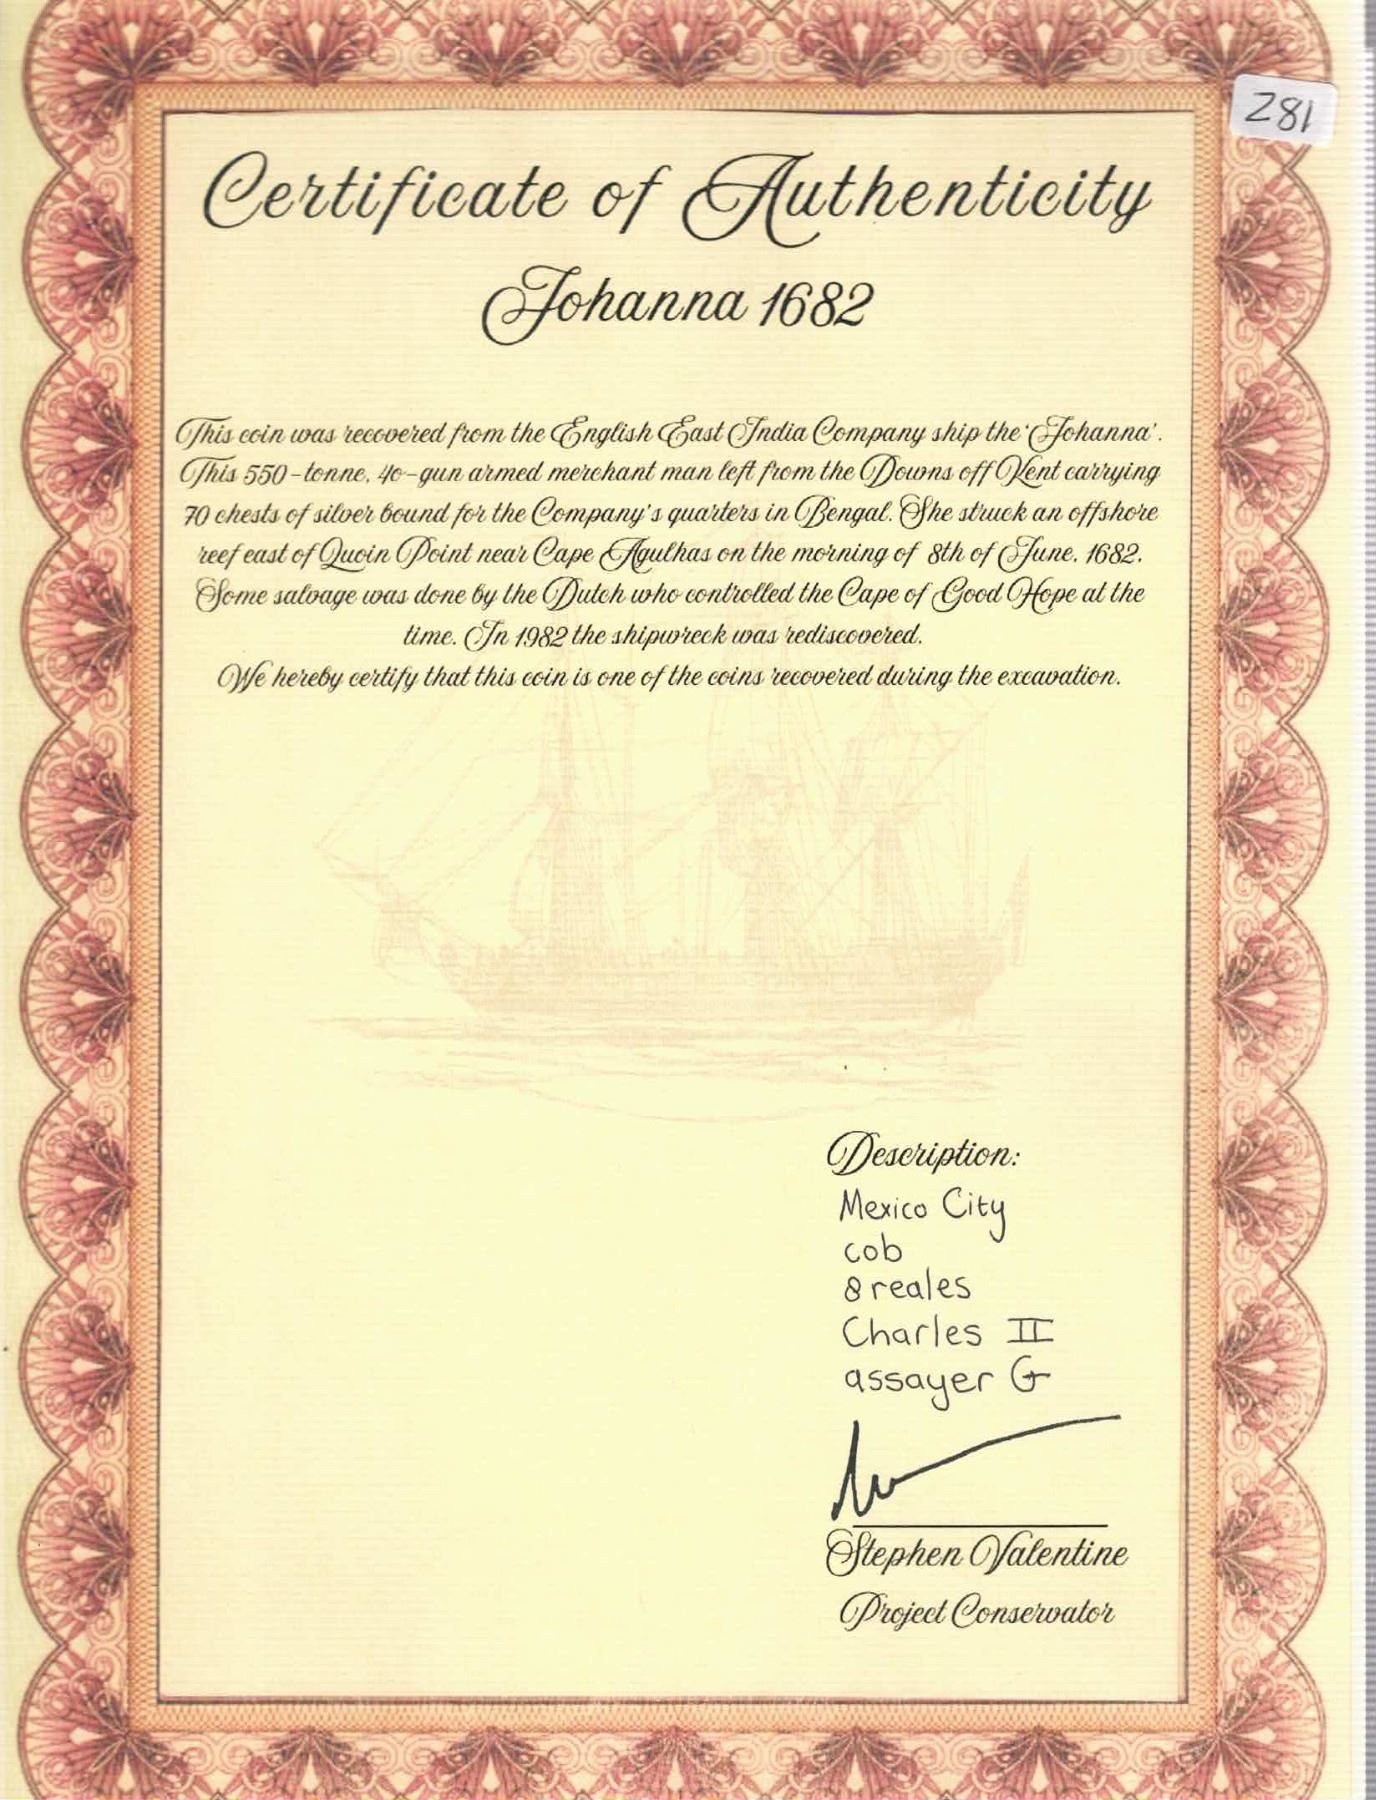 Z81
Certificate of Authenticity
Johanna 1682
This coin was recovered from the English East India Company ship the 'Johanna'.
This 550-tonne, 40-gun armed merchant man left from the Downs off Kent carrying
70 chests of silver bound for the Company's quarters in Bengal. She struck an offshore
reef east of Quoin Point near Cape Agulhas on the morning of 8th of June, 1682.
Some salvage was done by the Dutch who controlled the Cape of Good Hope at the
time. In 1982 the shipwreck was rediscovered.
We hereby certify that this coin is one of the coins recovered during the excavation.
Description:
Mexico City
cob
8 reales
Charles II
assayer G
Stephen Valentine
Project Conservator